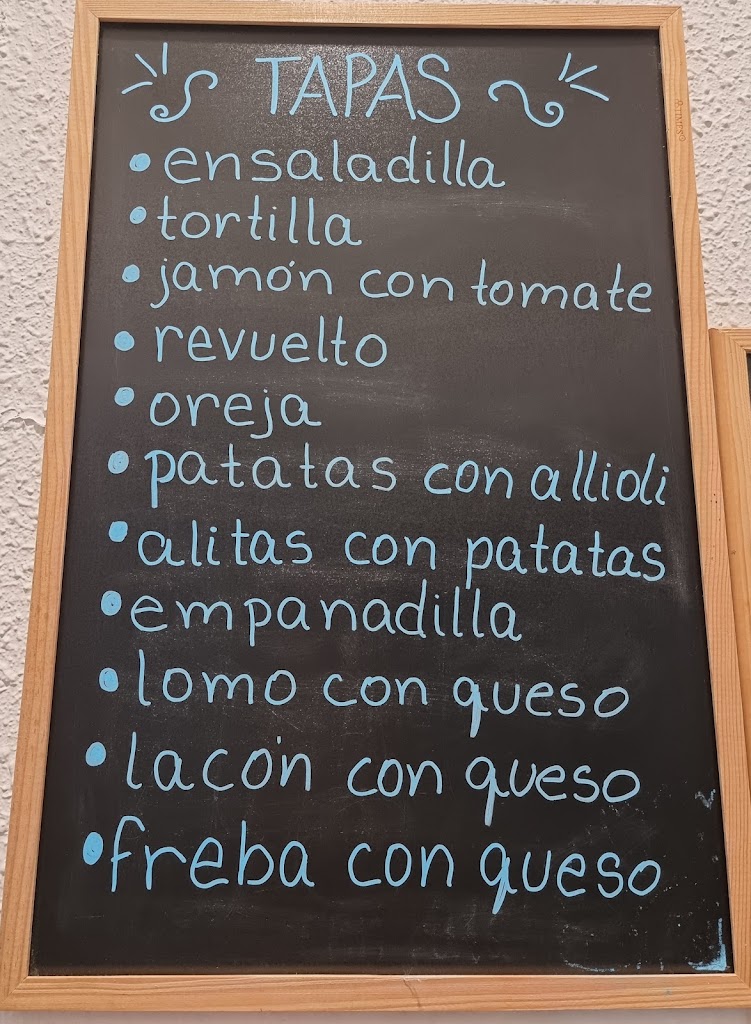 TAPAS
• ensaladilla
• tortilla
• jamón con tomate
• revuelto
• oreja
• patatas con allioli
• alitas con patatas
• empanadilla
• lomo con queso
• lacón con queso
• freba con queso